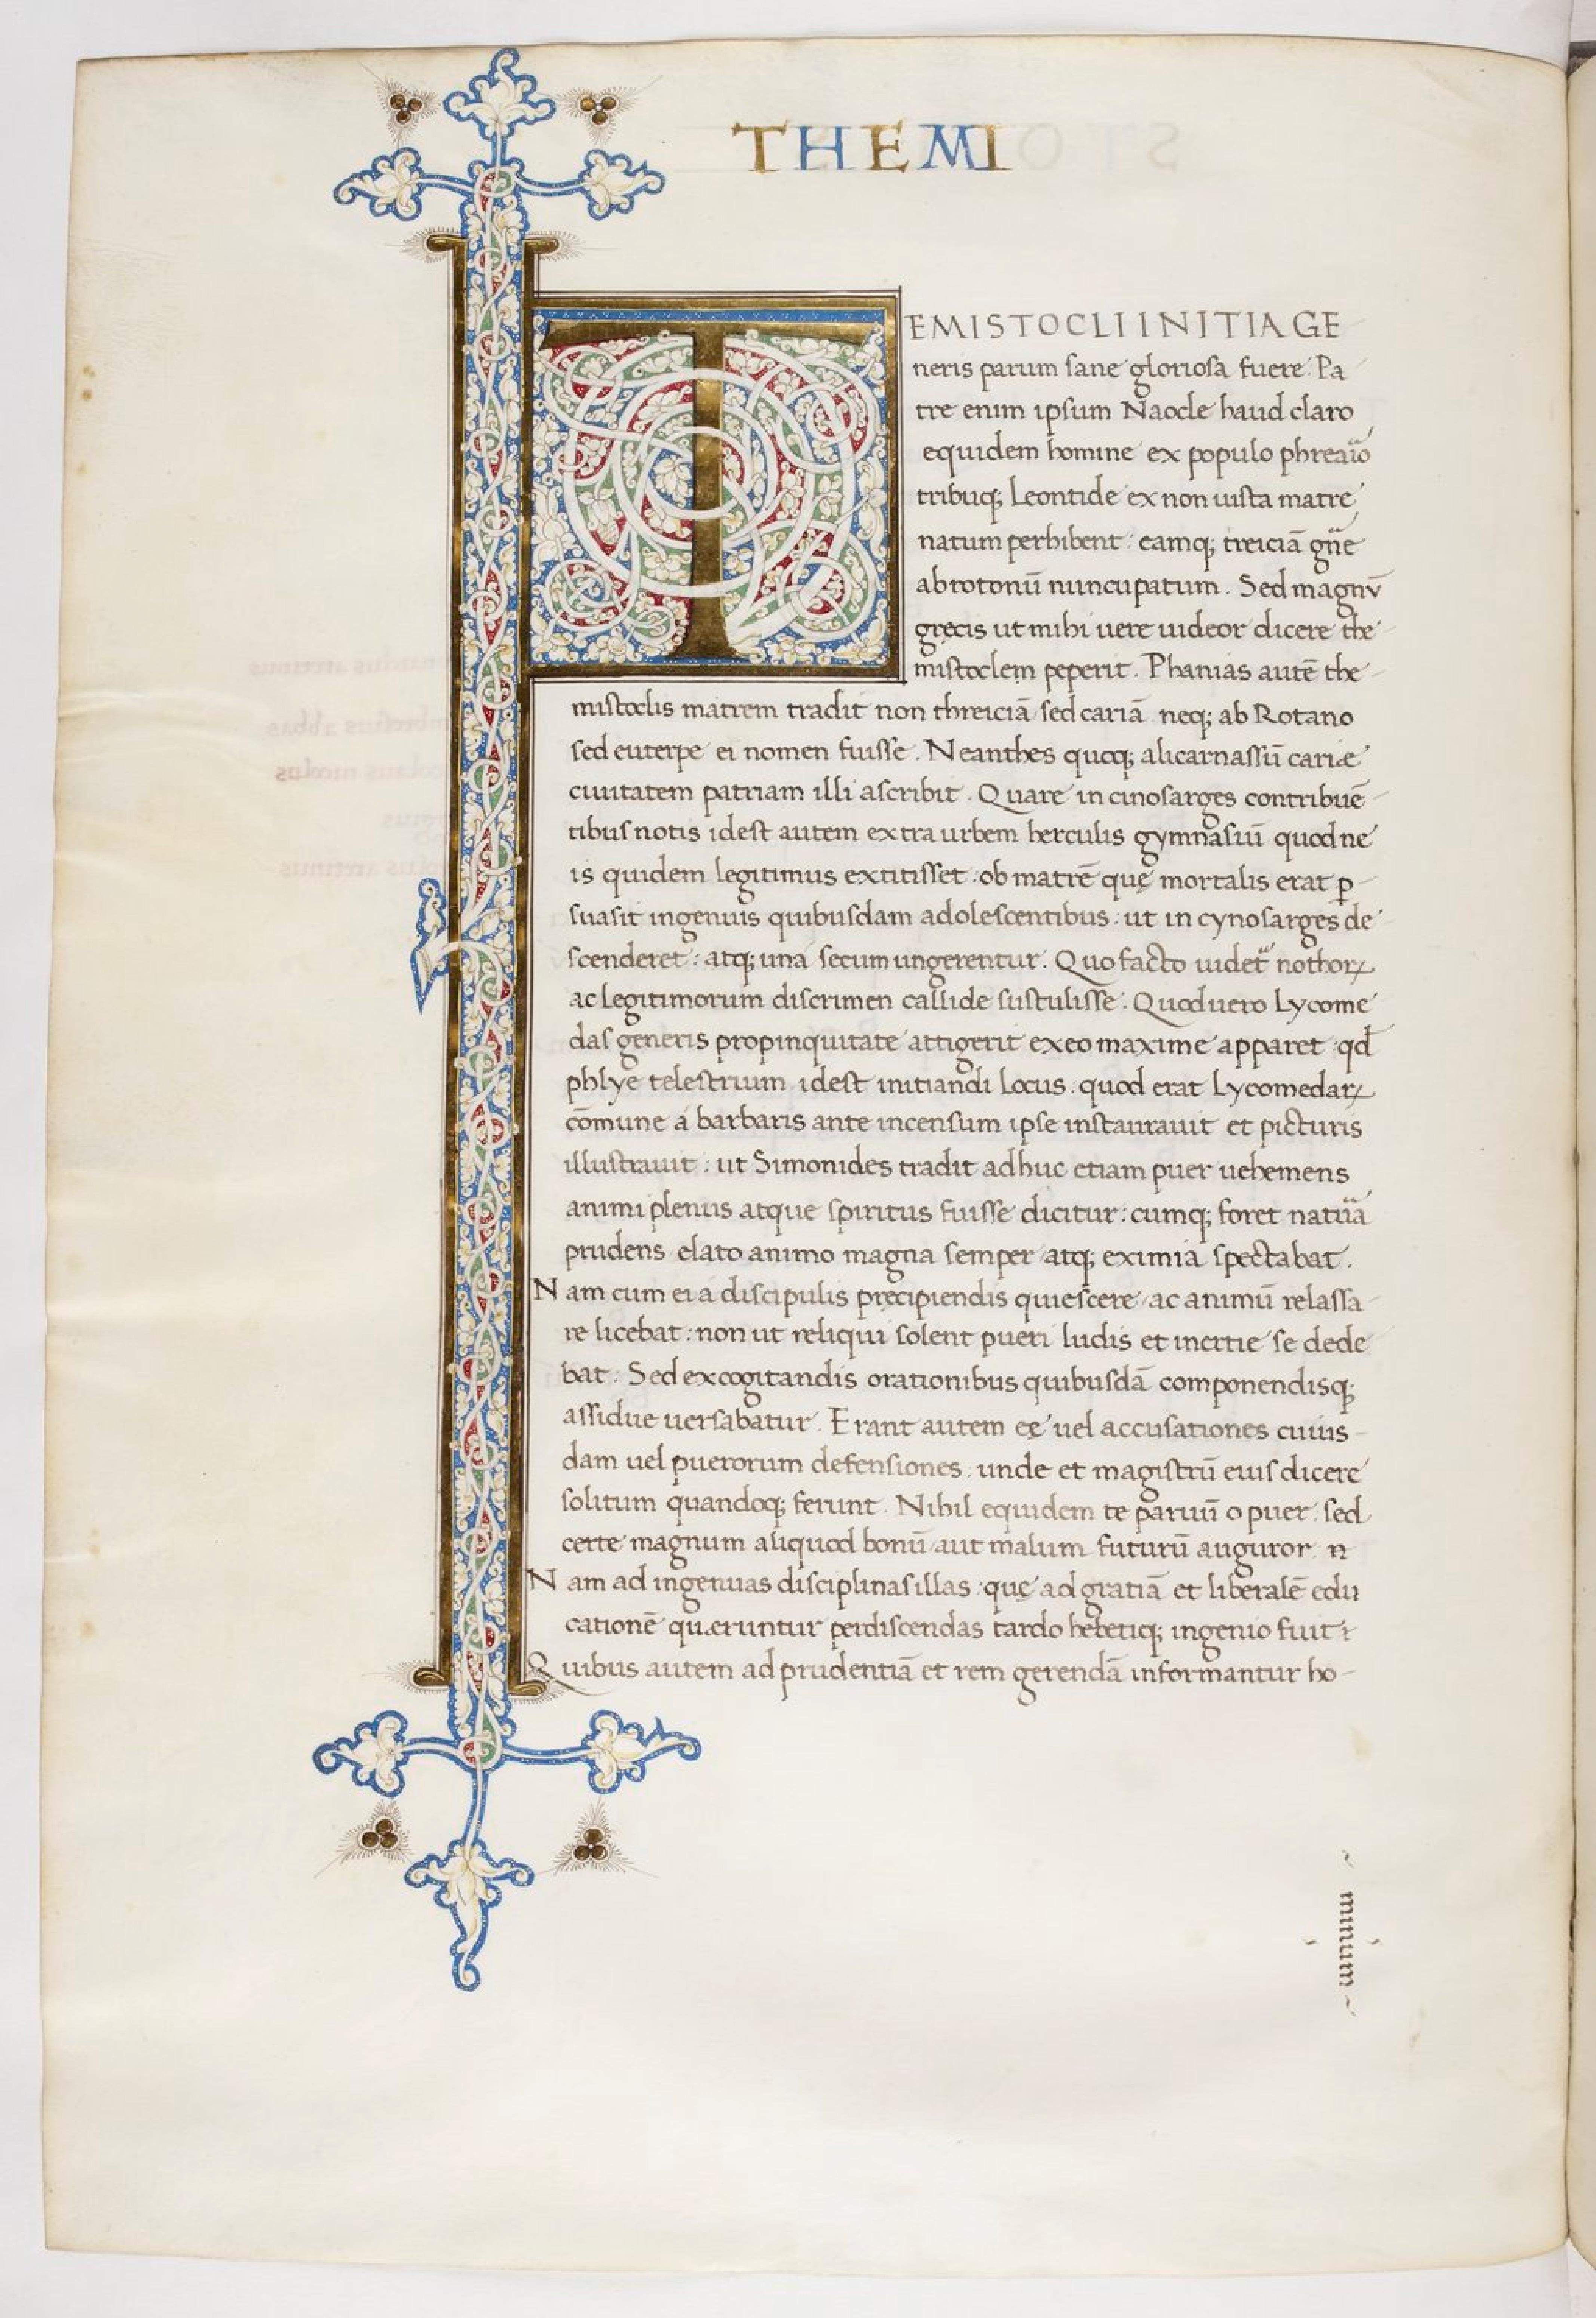 THEMI
TEMISTOCLI INITIA GE
neris parum sane gloriosa fuere. Pa
tre enim ipsum Naocle haud claro
equidem homine ex populo phreaıo
tribuq; Leontide ex non iusta matre
natum perhibent: eamq; treiciā gn̄e
abrotonū nuncupatum. Sed magnū
gręcis ut mihi uere uideor dicere the-
mistoclem peperit. Phanias autē the-
mistoclis matrem tradit non threiciā sed cariā neq; ab Rotano
sed euterpe ei nomen fuisse. Neanthes quoq; alicarnassū cariæ
ciuitatem patriam illi ascribit. Quare in cinosarges contribuē-
tibus notis idest autem extra urbem herculis gymnasiū quod ne
is quidem legitimus extitisset: ob matrē quę mortalis erat p̱-
suasit ingenuis quibusdam adolescentibus: ut in cynosarges de
scenderet: atq; una secum ungerentur. Quo facto uidet᷒ nothoꝝ
ac legitimorum discrimen callide sustulisse. Quod uero Lycome
das generis propinquitate attigerit ex eo maxime apparet qđ
phlye telestrium idest initiandi locus: quod erat Lycomedaꝝ
cōmune á barbaris ante incensum ipse instaurauit et picturis
illustrauit: ut Simonides tradit adhuc etiam puer uehemens
animi plenus atque spiritus fuisse dicitur: cumq; foret natūa
prudens elato animo magna semper atq; eximia spectabat.
Nam cum ei á discipulis pręcipiendis quiescere ac animū relassa-
re licebat: non ut reliqui solent pueri ludis et inertie se dede
bat. Sed excogitandis orationibus quibusdā componendisq;
assidue uersabatur. Erant autem eę uel accusationes cuius-
dam uel puerorum defensiones: unde et magistrū eius dicere
solitum quandoq; ferunt. Nihil equidem te paruū o puer: sed
certe magnum aliquod bonū aut malum futurū auguror. n
Nam ad ingenuas disciplinas illas: quę ad gratiā et liberalē edu
cationē quæruntur perdiscendas tardo hebetiq; ingenio fuit:
Quibus autem ad prudentiā et rem gerendā informantur ho-
minum